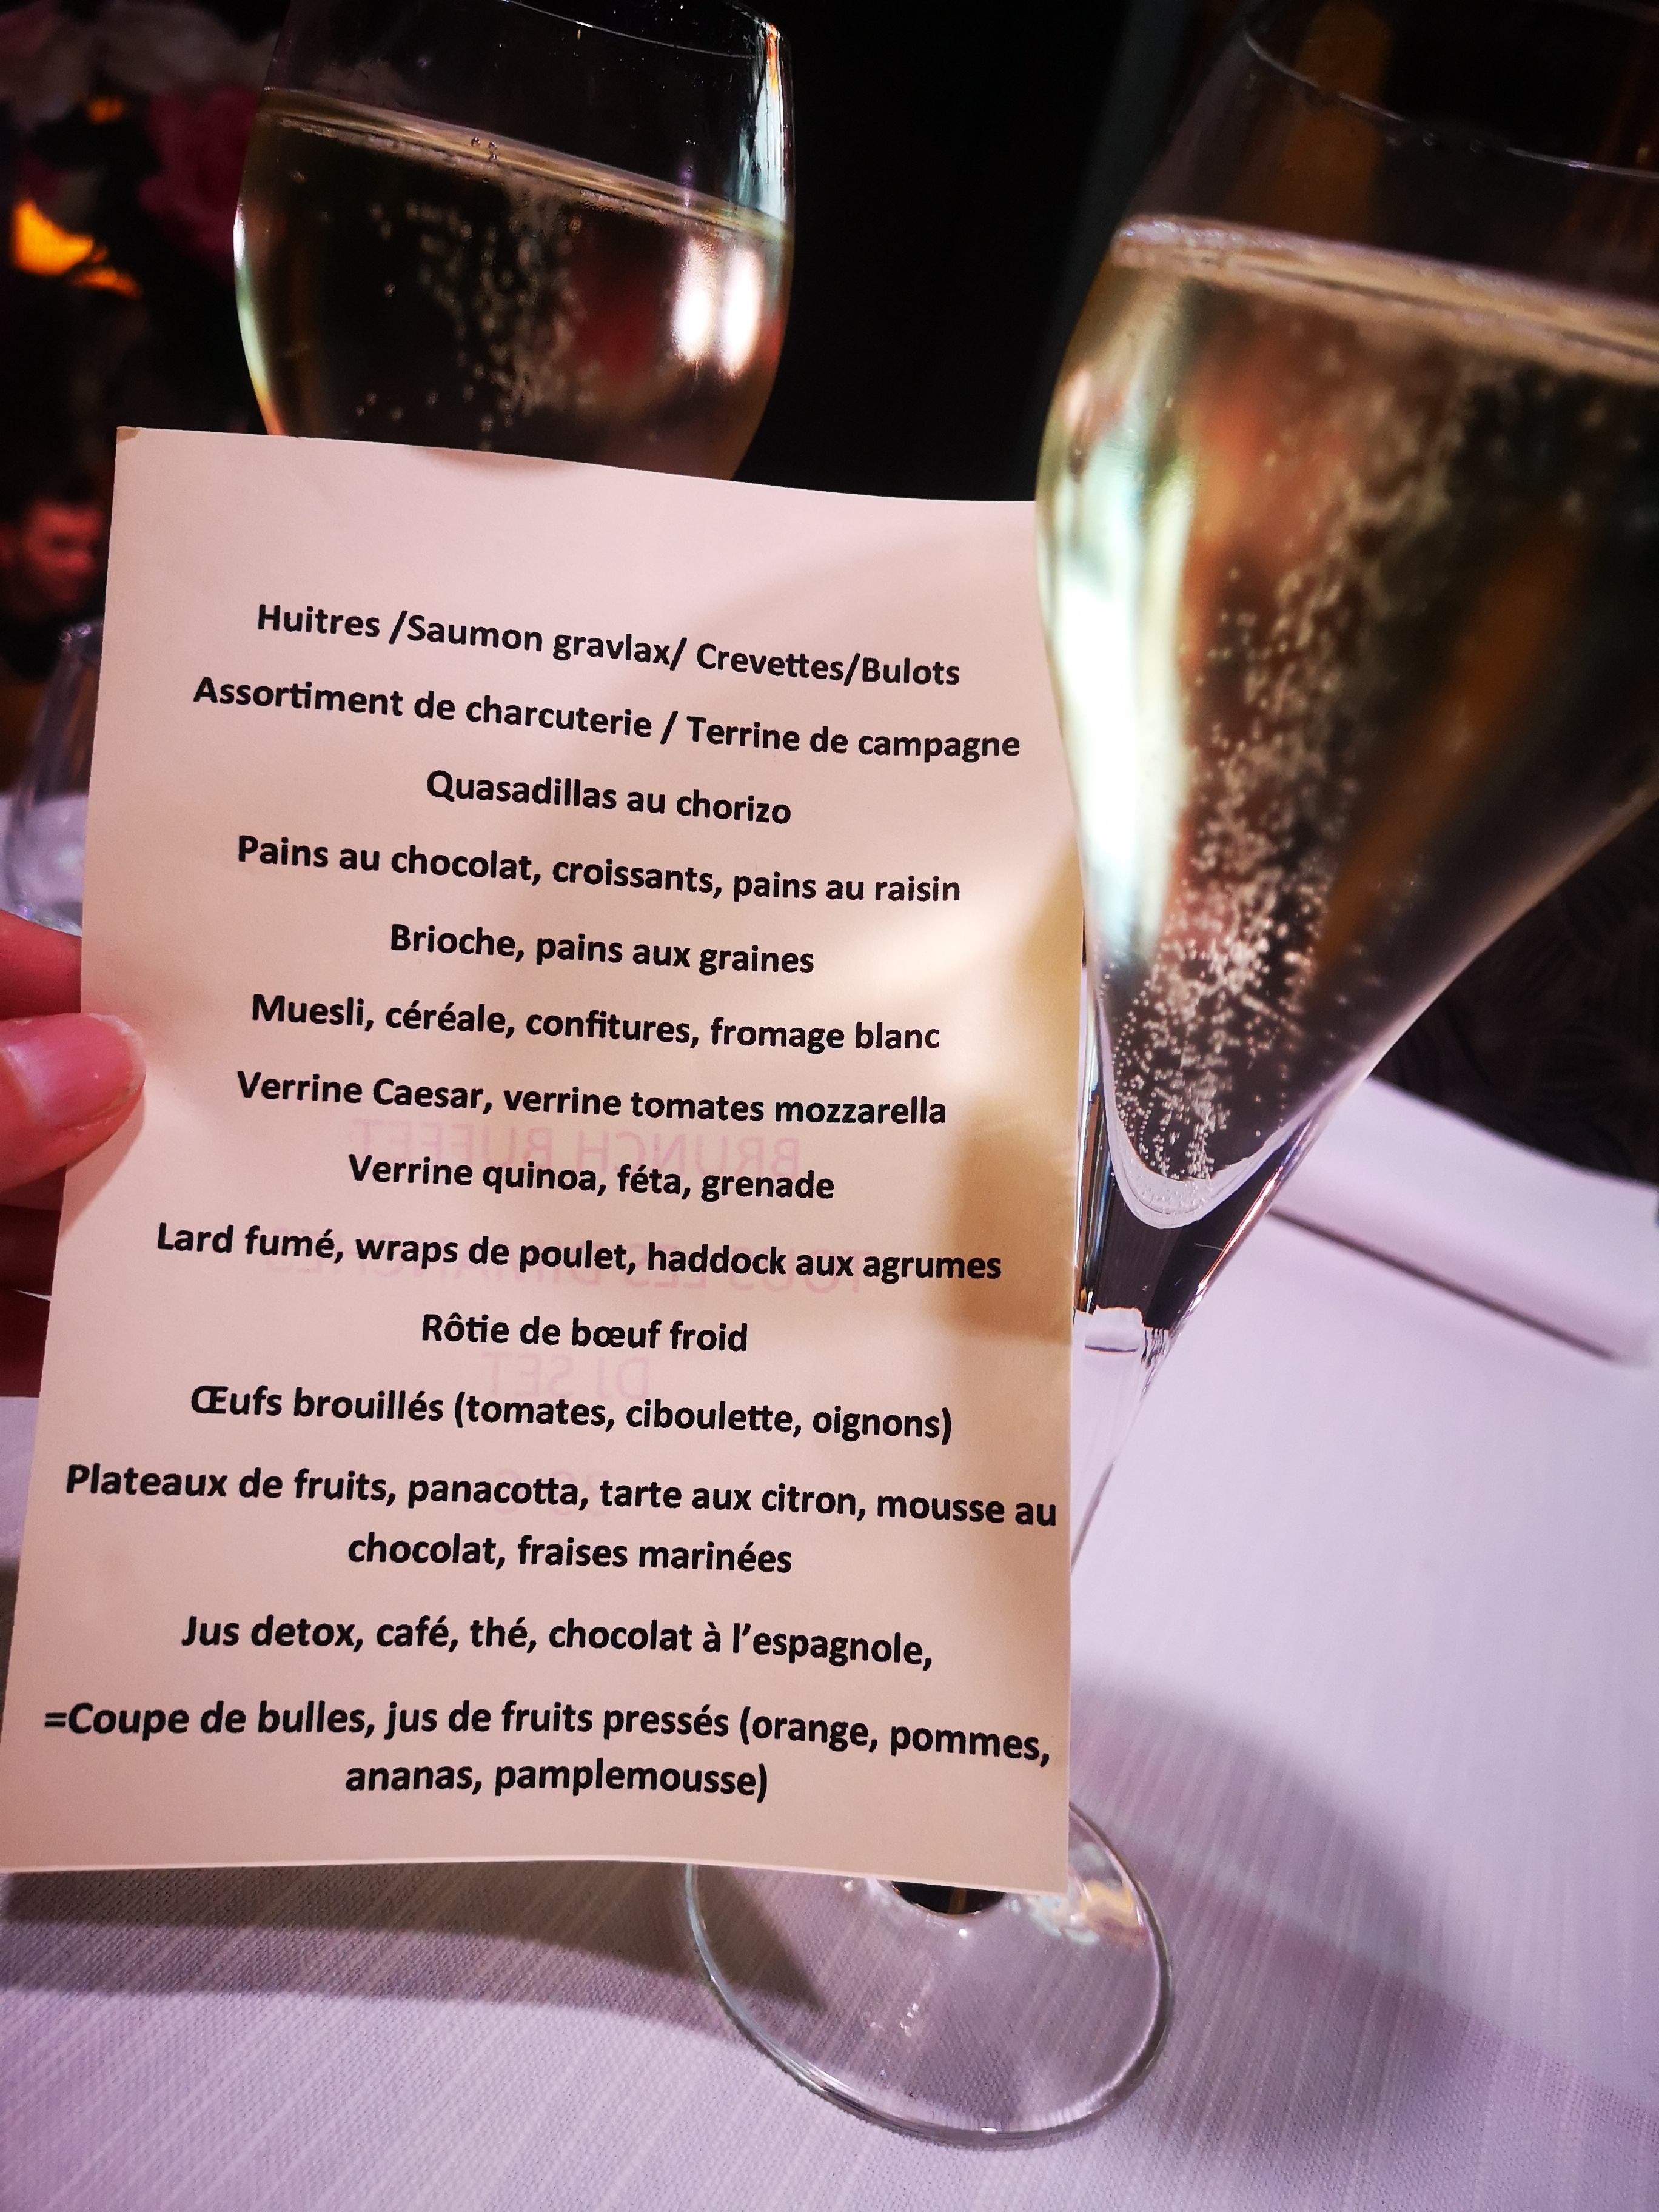 Huitres /Saumon gravlax/ Crevettes/Bulots
Assortiment de charcuterie / Terrine de campagne
Quasadillas au chorizo
Pains au chocolat, croissants, pains au raisin
Brioche, pains aux graines
Muesli, céréale, confitures, fromage blanc
Verrine Caesar, verrine tomates mozzarella
BRUNCH BUFFET
Verrine quinoa, féta, grenade
Lard fumé, wraps de poulet, haddock aux agrumes
TOUS LES DIMANCHES
Rôtie de bœuf froid
DJ SET
Œufs brouillés (tomates, ciboulette, oignons)
Plateaux de fruits, panacotta, tarte aux citron, mousse au
chocolat, fraises marinées
Jus detox, café, thé, chocolat à l'espagnole,
=Coupe de bulles, jus de fruits pressés (orange, pommes,
ananas, pamplemousse)